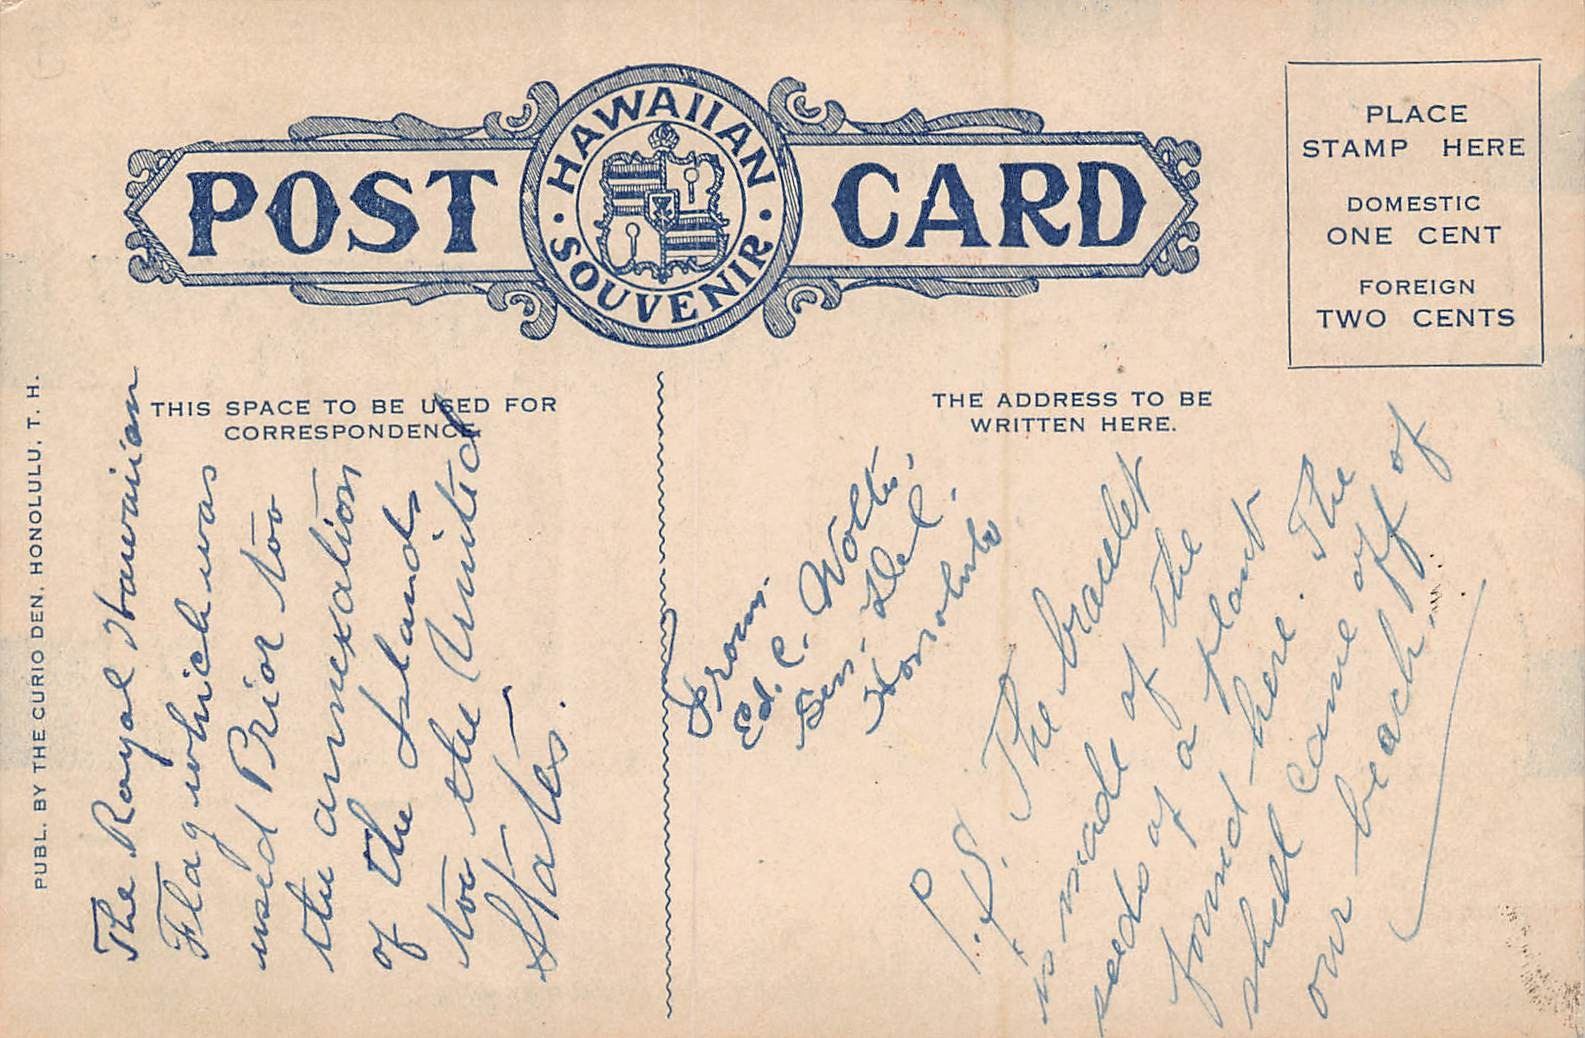 POST CARD
HAWAIIAN
SOUVENIR
PLACE
STAMP HERE
DOMESTIC
ONE CENT
FOREIGN
TWO CENTS
PUBL. BY THE CURIO DEN, HONOLULU, T. H.
THIS SPACE TO BE USED FOR
CORRESPONDENCE
The Royal Hawaiian
Flag which was
used Prior too
the annexation
of the Islands
too the United
States.
THE ADDRESS TO BE
WRITTEN HERE.
From.
Ed. C.
Gen. Del.
Honolulu
P.S. The bracelet
is made of the
seeds of a plant
found here. The
shell came off of
our beach.